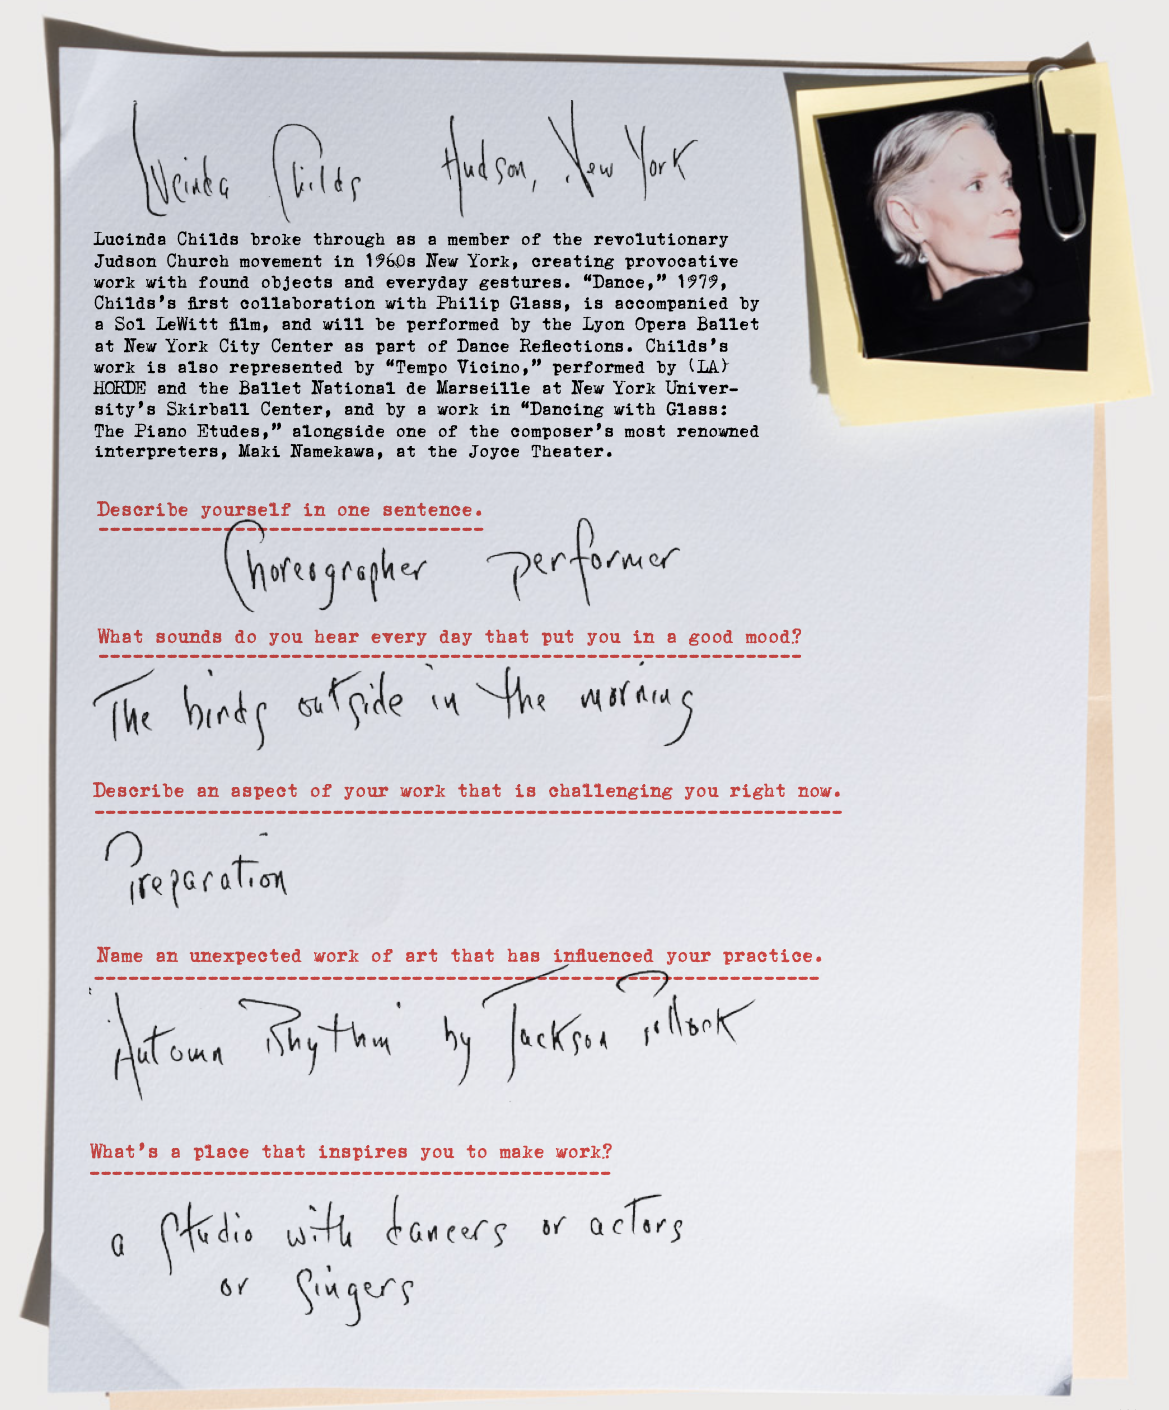 Lucinda Childs Hudson, New York
Lucinda Childs broke through as a member of the revolutionary
Judson Church movement in 1960s New York, creating provocative
work with found objects and everyday gestures. “Dance,” 1979,
Childs’s first collaboration with Philip Glass, is accompanied by
a Sol LeWitt film, and will be performed by the Lyon Opera Ballet
at New York City Center as part of Dance Reflections. Childs’s
work is also represented by “Tempo Vicino,” performed by (LA)
HORDE and the Ballet National de Marseille at New York Univer-
sity’s Skirball Center, and by a work in “Dancing with Glass:
The Piano Etudes,” alongside one of the composer’s most renowned
interpreters, Maki Namekawa, at the Joyce Theater.
Describe yourself in one sentence.
Choreographer performer
What sounds do you hear every day that put you in a good mood?
The birds outside in the morning
Describe an aspect of your work that is challenging you right now.
Preparation
Name an unexpected work of art that has influenced your practice.
Autumn Rhythm by Jackson Pollock
What’s a place that inspires you to make work?
a studio with dancers or actors
or singers